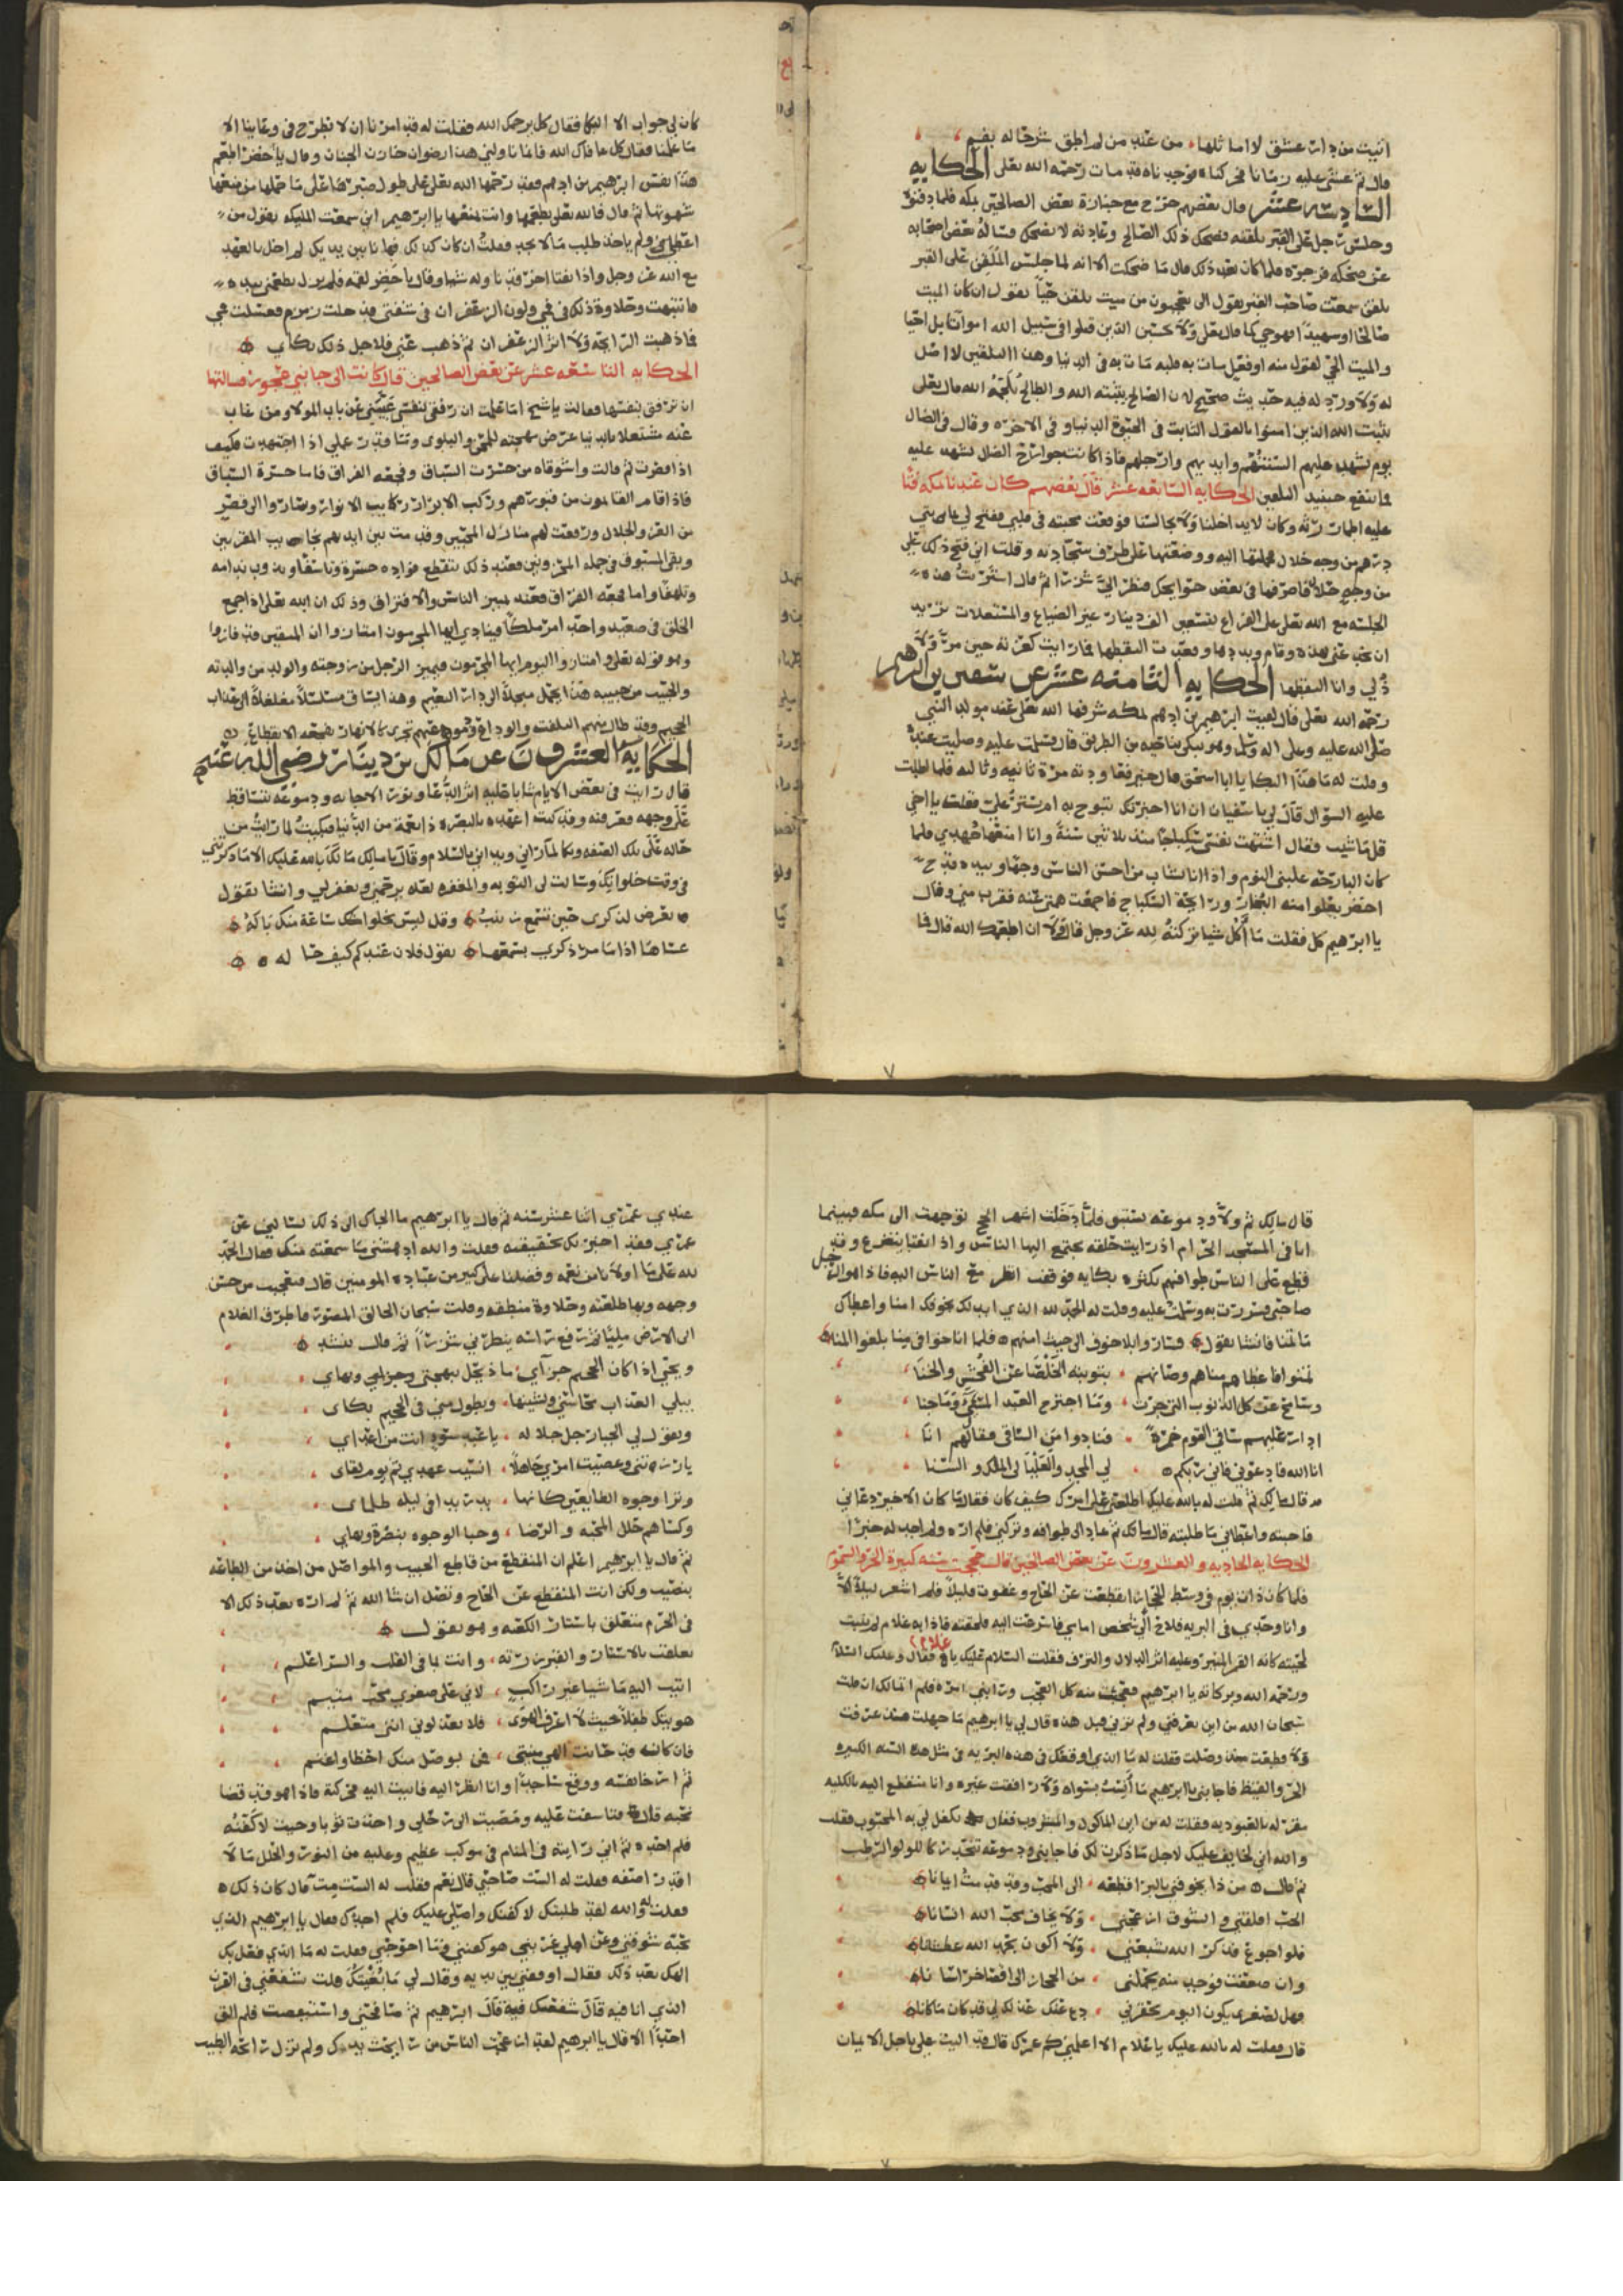 اتيت من دات عشق لا اما ثلها من عند من لم اطق شرحا له بفم
قال ثم غشي عليه زمانا فحركناه فوجدناه قد مات رحمه الله تعلى الحكايه
السادسه عشر قال بعضهم خرج مع جنازة بعض الصالحين بمكه فلما دفنوه
وجلس رجل على القبر يلقنه فضحك ذلك الصالح وعادته لا يضحك فساله بعض اصحابه
عن ضحكه فزجره فلما كان بعد ذلك قال ما ضحكت الا انه لما جلس الملقن على القبر
يلقن سمعت صاحب القبر يقول الى تعجبون من ميت يلقن حيا نقول ان كان الميت
صالحا او شهيدا فهو حي كما قال تعلى ولا تحسبن الذين قتلوا في سبيل الله امواتا بل احيا
والميت الحي
له ولا ورد له فيه حديث صحيح لان الصالح يثبته الله والطالح الله قال تعلى
يثبت الله الذين امنوا بالقول الثابت في الحيوة الدنيا وفي الاخره وقال في الضال
يوم تشهد عليهم السنتهم وايديهم وارجلهم فاذا كانت جوارح الضال تشهد عليه
فما ينفع حينيذ التلقين الحكايه السابعه عشر قال بعضهم كان عندنا بمكه فتا
عليه اطمار رثه وكان لا يداخلنا ولا يجالسنا فوقعت محبته في قلبي ففتح لي بمايتي
درهم من وجه حلال فحملتها اليه ووضعتها على طرف سجادته وقلت اني فتح ذلك علي
من وجه حلال فاصرفها في بعض حوايجك فنظر الي شزرا ثم قال اشتريت هذه
الجلسه مع الله تعلى على الفراغ بسبعين الف دينار غير الضياع والمستغلات تريد
ان تخدعني بهذه وقام وبددها وقعدت التقطها فما رايت كعزته حين مر ولا
ذلي وانا التقطها الحكايه الثامنه عشر عن سفين بن ابرهيم
رحمه الله تعلى قال لقيت ابرهيم بن ادهم بمكه شرفها الله تعلى عند مولد النبي
صلى الله عليه وعلى اله وسلم وهو يبكي بناحيه من الطريق قال فسلمت عليه وصليت عنده
وقلت له ما هذا البكا يا ابا اسحق قال خير فعاودته مرة ثانيه وثالثه فلما اطلت
عليه السوال قال لي يا سفيان ان انا اخبرتك تبوح به ام تستر علي فقلت يا اخي
قل ما شيت فقال اشتهت نفسي سكباجا منذ ثلاثين سنة وانا امنعها جهدي فلما
كان البارحه غلبني النوم واذا انا بشاب من احسن الناس وجها وبيده قدح
اخضر يعلوا منه البخار ورايحة السكباج فاجمعت همتي عنه فقرب مني وقال
يا ابرهيم كل فقلت ما اكل شيا تركته لله عز وجل قال ولا ان اطعمك الله قال فما
كان لي جواب الا البكا فقال كل يرحمك الله فقلت له قد امرنا ان لا نطرح في وعاينا الا
ما علمنا فقال كل عافاك الله فانما ناولني هذا رضوان خازن الجنان وقال يا خضر اطعم
هذا نفس ابرهيم بن ادهم فقد رحمها الله تعلى على طول صبرها على ما حملها من منعها
شهوتها ثم قال فالله تعلى يطعمها وانت تمنعها يا ابرهيم اني سمعت المليكه يقول من
اعطي ولم ياخذ طلب ما لا يجد فقلت ان كان كذلك فها انا بين يديك لم اخل بالعهد
مع الله عز وجل واذا بفتا اخر قد ناوله شيا وقال يا خضر لقمه فلم يزل يطعمني بيده
فانتبهت وحلاوة ذلك في فمي ولون الزعفران في شفتي فدخلت زمزم فغسلت فمي
فلا ذهبت الرايحه ولا اثر الزعفران ثم ذهب عني فلاجل ذلك بكاي
الحكايه التاسعه عشر عن بعض الصالحين قال كانت الى جانبي عجوز فسالتها
ان ترفق بنفسها فقالت يا شيخ اما علمت ان رفقي بنفسي غيبني عن باب المولا ومن غاب
عنه مشتغلا بالدنيا عرض مهجته للمحن والبلوى وما قدر عملي اذا اجتهدت فكيف
اذا قصرت ثم قالت واشوقاه من حسرت السباق وفجعه الفراق فاما حسرة السباق
فاذا قام القايمون من قبورهم وركب الابرار ركايب الانوار وصاروا الى قصر
من العز والجلال ورفعت لهم منازل المحبين وقدمت بين ايديهم نجايب المقربين
وبقي المسبوق في جملة المحزونين فعند ذلك ينقطع فواده حسرة وتاسفا ويذوب ندامه
وتلهفا واما فجعه الفراق فعند تمييز الناس والافتراق وذلك ان الله تعلى اذا جمع
الخلق في صعيد واحد امر ملكا فينادي ايها المجرمون امتازوا ان المتقين قد فازوا
وهو قوله تعلى وامتازوا اليوم ايها المجرمون فيميز الرجل من زوجته والولد من والدته
والحبيب من حبيبه هذا يحمل مبجلا الى دار النعيم وهذا يساق مسلسلا مغلغلا الى عذاب
الجحيم وقد طال بينهم التلفت والوداع ودموعهم تجري كالانهار بفجعه الانقطاع
الحكاية العشرون عن مالك بن دينار رضي الله عنهم
قال رايت في بعض الايام شابا عليه اثر الدعا ونور الاجابه ودموعه تتساقط
على وجهه فعرفته وقد كنت اعهده بالبصره ذا نعمة من الدنيا فبكيت لما رايت من
حاله على تلك الصفه وبكا لما راني وبداني بالسلام وقال يا مالك سالتك بالله عليك الا ما ذكرتني
في وقت خلواتك وسالت لي التوبه والمغفره لعله يرحمني ويغفر لي وانشا يقول
تعرض لذكري حين تسمع زينب وقل ليس يخلوا ساعة منك باله
عساها اذا ما مر ذكري بسمعها يقول فلان عندكم كيف حاله
قال مالك ثم ولا ودموعه تستبق فلما دخلت اشهر الحج توجهت الى مكه فبينما
انا في المسجد الحرام اذ رايت حلقه يجتمع اليها الناس واذا بفتا يتضرع وقد
قطع على الناس طوافهم بكثرة بكايه فوقفت انظر مع الناس اليه فاذا هو الرجل
صاحبي فسررت به وسلمت عليه وقلت له الحمد لله الذي ابدلك بخوفك امنا واعطاك
ما تمنا فانشا يقول فساروا بلا خوف الى حيث امنهم فلما اناخوا في منا بلغوا المنا
تمنوا فاعطاهم مناهم وصانهم بتوبته الخلصا عن الفحش والخنا
وسامح عن كل الذنوب التي جرت وما اجترم العبد المسي وما جنا
ادار عليهم ساقي القوم خمرة فنادوا من الساقي فقال لهم انا
انا الله فادعوني فاني ربكم لي المجد والعليا لي الملك والسنا
قال مالك ثم قلت له بالله عليك اطلعني على امرك كيف كان فقال ما كان الا خير دعاني
فاجبته واعطاني ما طلبته قال مالك ثم عاد الى طوافه وتركني فلم اره ولم اجد له خبرا
الحكايه الحاديه والعشرون عن بعض الصالحين قال حججت سنه كبيرة الحر والسموم
فلما كان ذات يوم في وسط الحجاز انقطعت عن الحاج وغفوت قليلا فلم اشعر ليلا الا
وانا وحدي في البريه فلاح لي شخص امامي فاسرعت اليه فلحقته فاذا به غلام لم ينبت
لحيته كانه القمر المنير وعليه اثر الدلال والترف فقلت السلام عليك يا غلام فقال وعليك السلام
ورحمة الله وبركاته يا ابرهيم فعجبت منه كل العجب ورابني امره فلم اتمالك ان قلت
سبحان الله من اين تعرفني ولم ترني قبل هذه قال لي يا ابرهيم ما جهلت منذ عرفت
ولا قطعت منذ وصلت فقلت له ما الذي اوقعك في هذه البريه في مثل هذه السنه الكبيره
الحر والقيظ فاجابني يا ابرهيم ما انست بسواه ولا رافقت غيره وانا منقطع اليه بالكليه
مقر له بالعبوديه فقلت له من اين الماكول والمشروب فقال تكفل لي به المحبوب فقلت
والله اني لخايف عليك لاجل ما ذكرت لك فاجابني ودموعه تتحدر كاللولو الرطب
ثم قال من ذا يخوفني بالبر اقطعه الى المحب وقد قدمت ايمانا
الحب اقلقني والشوق ازعجني ولا يخاف محب الله انسانا
فلو اجوع فذكر الله يشبعني ولا اكون بحمد الله عطشانا
وان ضعفت فوجد منه يحملني من الحجاز الى اقصا خراسانا
فهل لصغري يكون اليوم تحقرني دع عنك عذلك لي قد كان ما كانا
قال فقلت له بالله عليك يا غلام الا اعلمتني كم عمرك قال قد اليت علي باجل الايمان
عندي عمري اثنا عشر سنه ثم قال يا ابرهيم ما الجاك الى ذلك تسالني عن
عمري فقد اخبرتك بحقيقته فقلت والله ادهشتني ما سمعته منك فقال الحمد
لله على ما اولانا من نعمه وفضلنا على كثير من عباده المومنين قال فتعجبت من حسن
وجهه وبها طلعته وحلاوة منطقه وقلت سبحان الخالق المصور فاطرق الغلام
الى الارض مليا ثم رفع راسه ينظرني شزرا ثم قال ينشد
ويحي اذا كان الجحيم جزاي ماذا يحل ببهجتي وجمالي وبهاي
يبلي العذاب محاسني ويشينها ويطول مني في الجحيم بكاي
ويقول لي الجبار جل جلاله يا عبد سوء انت من اعداي
بارزتني وعصيت امري جاهلا انسيت عهدي ثم يوم لقاي
وترا وجوه الطايعين كانها بدر بدا في ليلة ظلماي
وكساهم حلل المحبه والرضا وحبا الوجوه بنضرة وبهاي
ثم قال يا ابرهيم اعلم ان المنقطع من قاطع الحبيب والمواصل من اخذ من الطاعه
بنصيب ولكن انت المنقطع عن الحاج وتصل ان شا الله ثم لم اره بعد ذلك الا
في الحرم متعلق باستار الكعبه وهو يقول
تعلقت بالاستار والقبر زرته وانت بما في القلب والسر اعلم
اتيت اليه ماشيا غير راكب لاني على صغري محب متيم
هويتك طفلا حيث لا اعرف الهوى فلا تعذلوني انني متعلم
فان كانت قد حانت الهي منيتي فمن بوصل منك احظا واغنم
ثم ارخا نفسه ووقع ساجدا وانا انظر اليه فاتيت اليه فحركته فاذا هو قد قضا
نحبه قال فتاسفت عليه ومضيت الى رحلي واخذت ثوبا وجيت لاكفنه
فلم اجده ثم اني رايته في المنام في موكب عظيم وعليه من النور والحلل ما لا
اقدر اصفه فقلت له الست صاحبي قال نعم فقلت له الست مت قال كان ذلك
فقلت له والله لقد طلبتك لاكفنك واصلي عليك فلم اجدك فقال يا ابرهيم الذي
بحبه شوقني وعن اهلي غربني هو كفنني وما احوجني فقلت له ما الذي فعل بك
الهك بعد ذلك فقال اوقفني بين يديه وقال لي ما بغيتك قلت شفعني في القرن
الذي انا فيه قال شفعتك فيه قال ابرهيم ثم صافحني واستيقضت فلم الق
احدا الا قال يا ابرهيم لقد ازعجت الناس من رايحت يديك ولم تزل رايحه الطيب